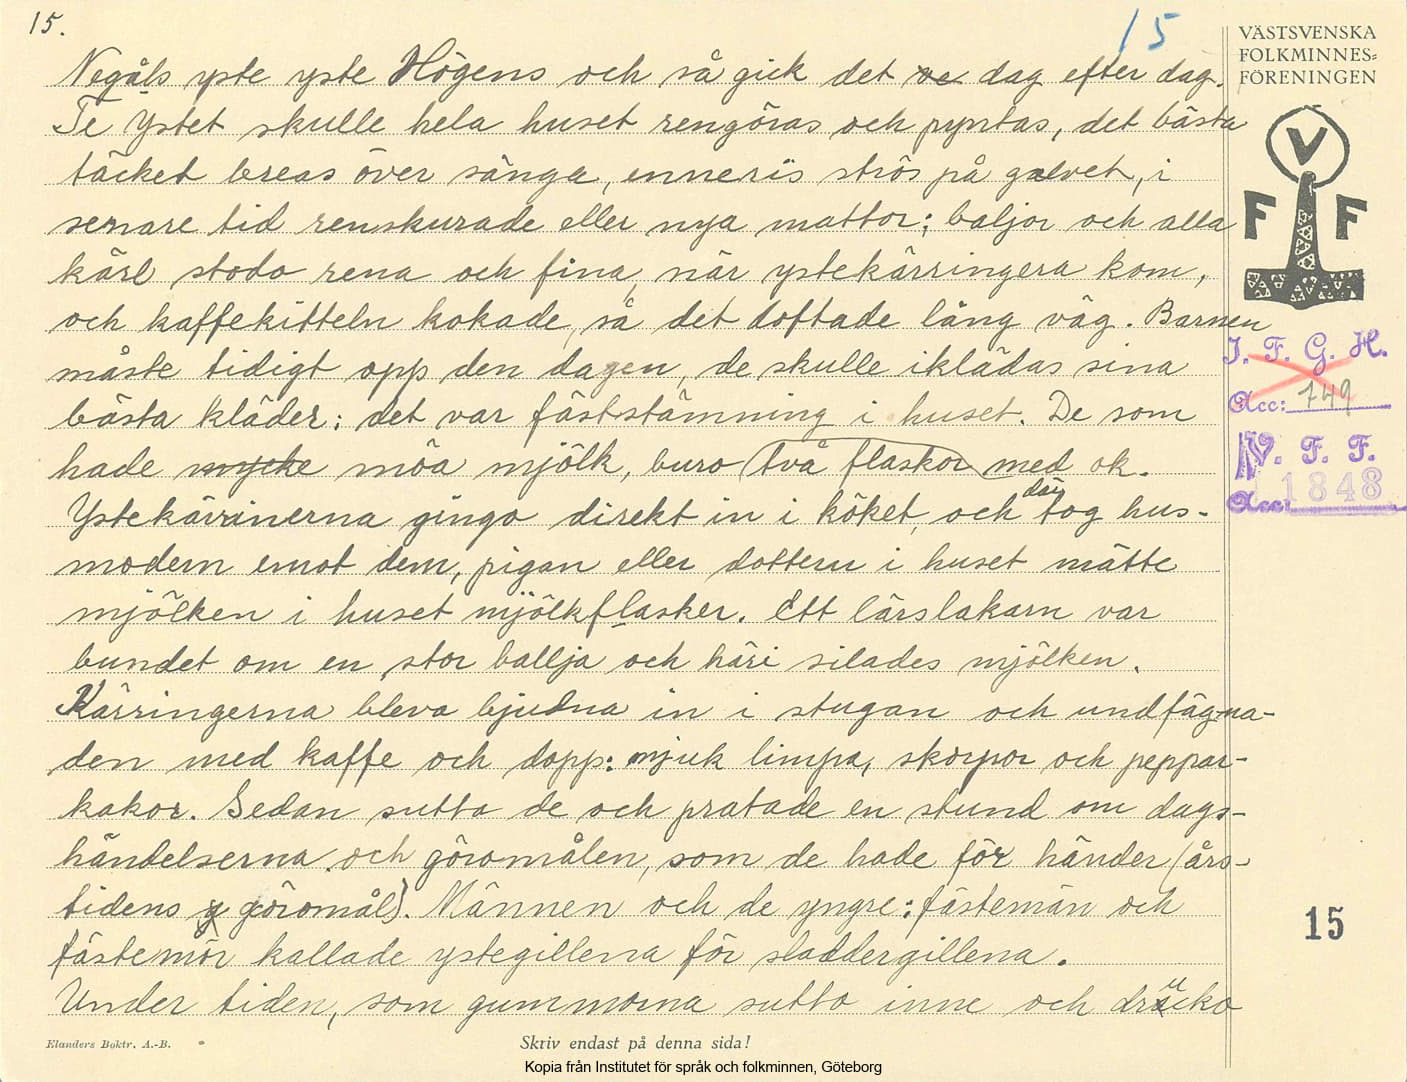 15.
15
VÄSTSVENSKA
FOLKMINNES=
FÖRENINGEN
V
F F
Negåls yste yste Högens och så gick det dag efter dag.
Te ystet skulle hela huset rengöras och pyntas, det bästa
täcket breas över sänga, enneris strös på golvet, i
senare tid renskurade eller nya mattor; baljor och alla
kärl stodo rena och fina, när ystekärringera kom,
och kaffekitteln kokade, så det doftade lång väg. Barnen
måste tidigt opp den dagen, de skulle iklädas sina
bästa kläder; det var fäststämning i huset. De som
hade mycke möa mjölk, buro två flaskor med ok.
Ystekärinerna gingo direkt in i köket, och där tog hus-
modern emot dem, pigan eller dottern i huset mätte
mjölken i huset mjölkflasker. Ett lärslakarn var
bundet om en stor ballja och häri silades mjölken.
Kärringerna bleva bjudna in i stugan och undfägna-
den med kaffe och dopp: mjuk limpa, skorpor och peppar-
kakor. Sedan sutto de och pratade en stund om dags-
händelserna och göromålen, som de hade för händer (års-
tidens göromål). Männen och de yngre: fästemän och
fästemör kallade ystegillena för sladdergillena.
Under tiden, som gummorna sutto inne och drucko
I. F. G. H.
Acc: 749
V. F. F.
Acc: 1848
15
Elanders Boktr. A.-B.
Skriv endast på denna sida!
Kopia från Institutet för språk och folkminnen, Göteborg